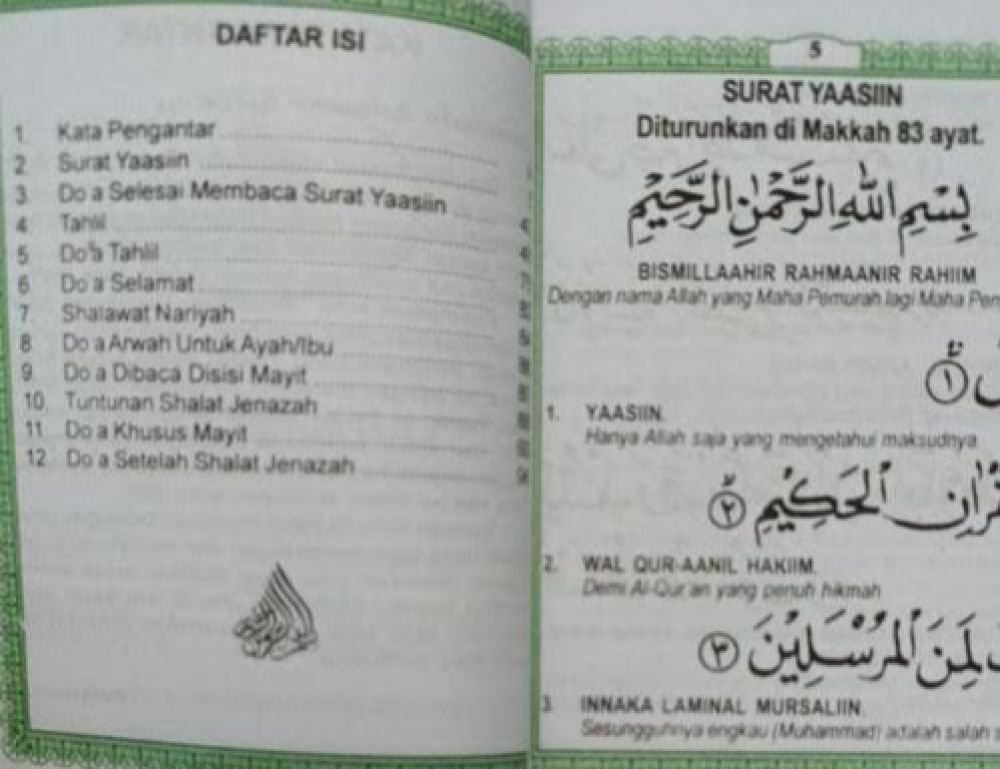 DAFTAR ISI
1. Kata Pengantar
2. Surat Yaasiin
3. Do a Selesai Membaca Surat Yaasiin
4. Tahlil
5. Do'a Tahlil
6. Do a Selamat
7. Shalawat Nariyah
8. Do a Arwah Untuk Ayah/Ibu
9. Do a Dibaca Disisi Mayit
10. Tuntunan Shalat Jenazah
11. Do a Khusus Mayit
12. Do a Setelah Shalat Jenazah
5
SURAT YAASIIN
Diturunkan di Makkah 83 ayat.
بِسْمِ اللّٰهِ الرَّحْمٰنِ الرَّحِيْمِ
BISMILLAAHIR RAHMAANIR RAHIIM
Dengan nama Allah yang Maha Pemurah lagi Maha
١
1. YAASIIN.
Hanya Allah saja yang mengetahui maksudnya
الْحَكِيْمِ ٢
2. WAL QUR-AANIL HAKIIM.
Demi Al-Qur'an yang penuh hikmah
لَمِنَ الْمُرْسَلِيْنَ ٣
3. INNAKA LAMINAL MURSALIIN.
Sesungguhnya engkau (Muhammad) adalah salah